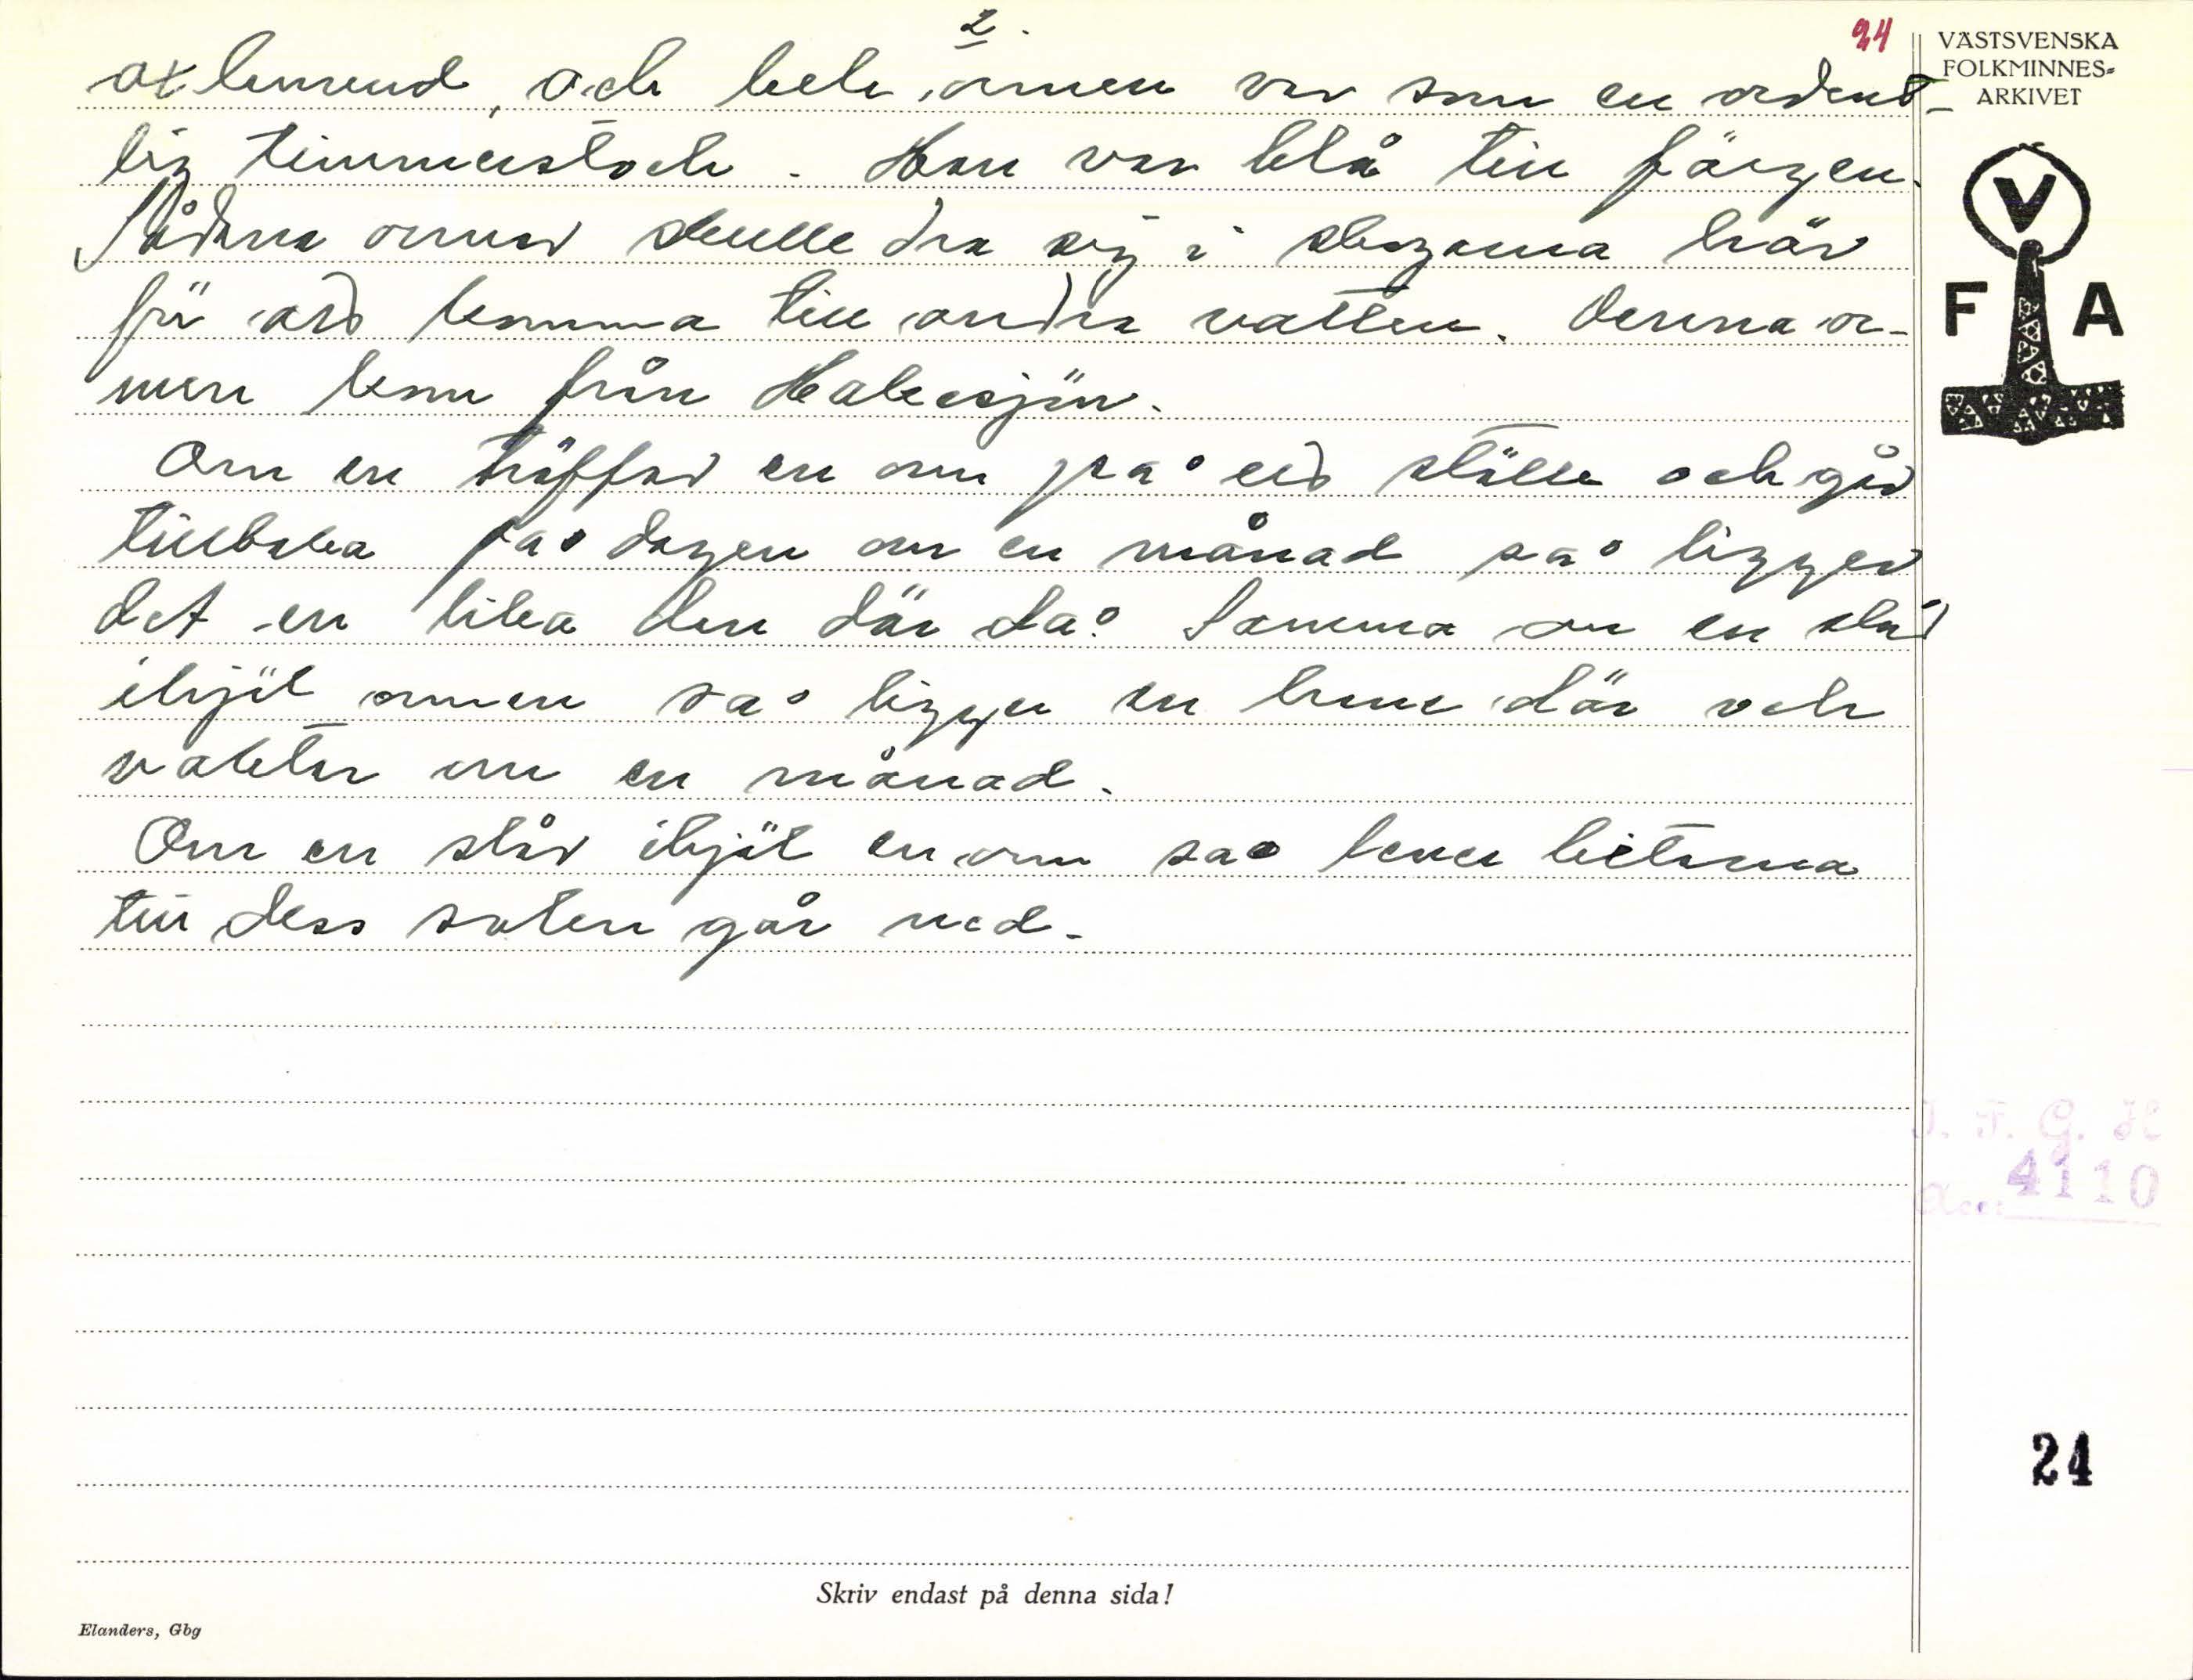 2.
24
VÄSTSVENSKA
FOLKMINNES-
ARKIVET
oxhuvud, och hela ormen var som en ordent-
lig timmerstock. Han var blå till färgen.
Sådana ormar skulle dra sig i skogarna här
för att komma till andra vatten. Denna or-
men kom från Hakesjön.
Om en träffar en orm på ett ställe och går
tillbaka på dagen om en månad så ligger
det en lika den där då. Samma om en slår
ihjäl ormen så ligger en hane där och
vaktar om en månad.
Om en slår ihjäl en orm så lever bitarna
till dess solen går ned.
V
F A
I. F. G. H
Acc: 4110
24
Skriv endast på denna sida!
Elanders, Gbg